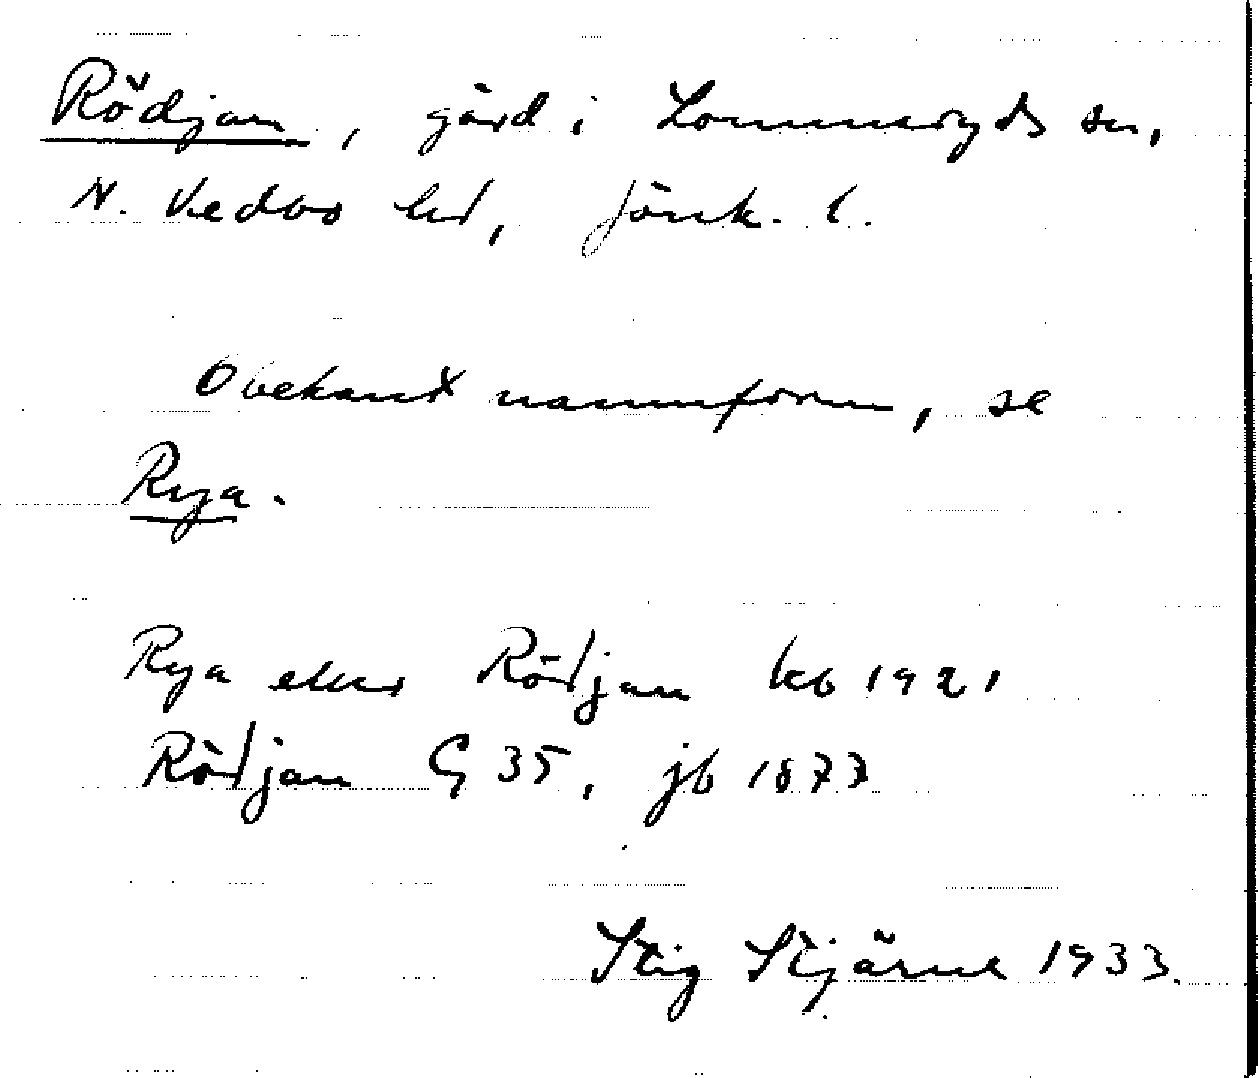 Rödjan, gård i Lommaryds sn,
N. Vedbo hd, Jönk. l.
Obekant namnform, se
Rya.
Rya eller Rödjan kb 1921
Rödjan G 35, jb 1877
Stig Stjärne 1933.